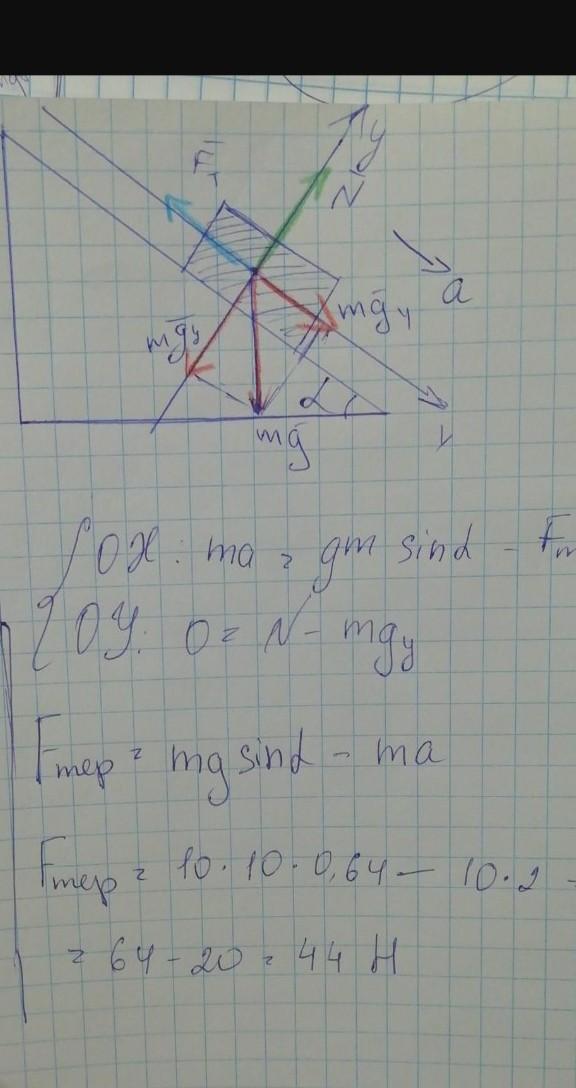 F̄т
y
N̄
a
mḡy
mḡy
α
mḡ
{ OX: ma = gm sinα - Fт
OY: 0 = N - mgy
Fтер = mg sinα - ma
Fтер = 10·10·0,64 - 10·2
= 64 - 20 = 44 Н